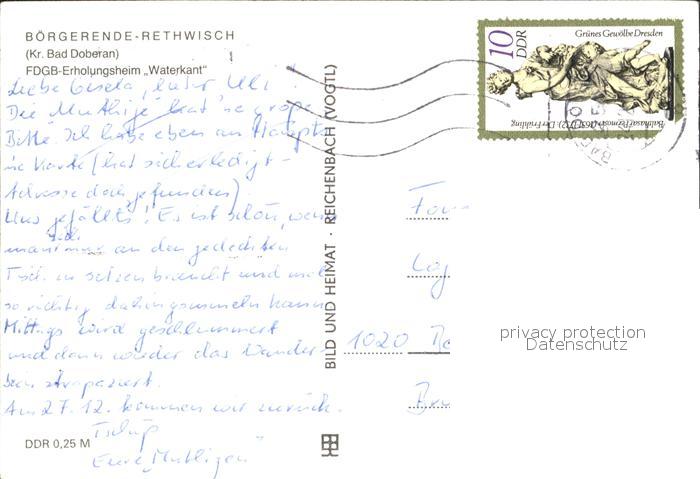 BÖRGERENDE-RETHWISCH
(Kr. Bad Doberan)
FDGB-Erholungsheim „Waterkant"
Liebe Gisela, lieber Uli!
Die Muthige hat 'ne große
Bitte. Ich habe eben an
'ne Karte (hat sich erledigt -
Adresse doch gefunden)
Uns gefällts! Es ist schön, wenn
man sich nur an den gedeckten
Tisch zu setzen braucht und mal
so richtig kann
Mittags wird geschlummert
und dann wieder das Wander-
strapaziert.
Am 27.12. kommen wir zurück.
Tschüß
Eure „Muthigen"
DDR 0,25 M
BILD UND HEIMAT · REICHENBACH (VOGTL)
10 DDR
Grünes Gewölbe Dresden
Balthasar Permoser 1651-1732 Der Frühling
Fam
1020 Be
privacy protection
Datenschutz